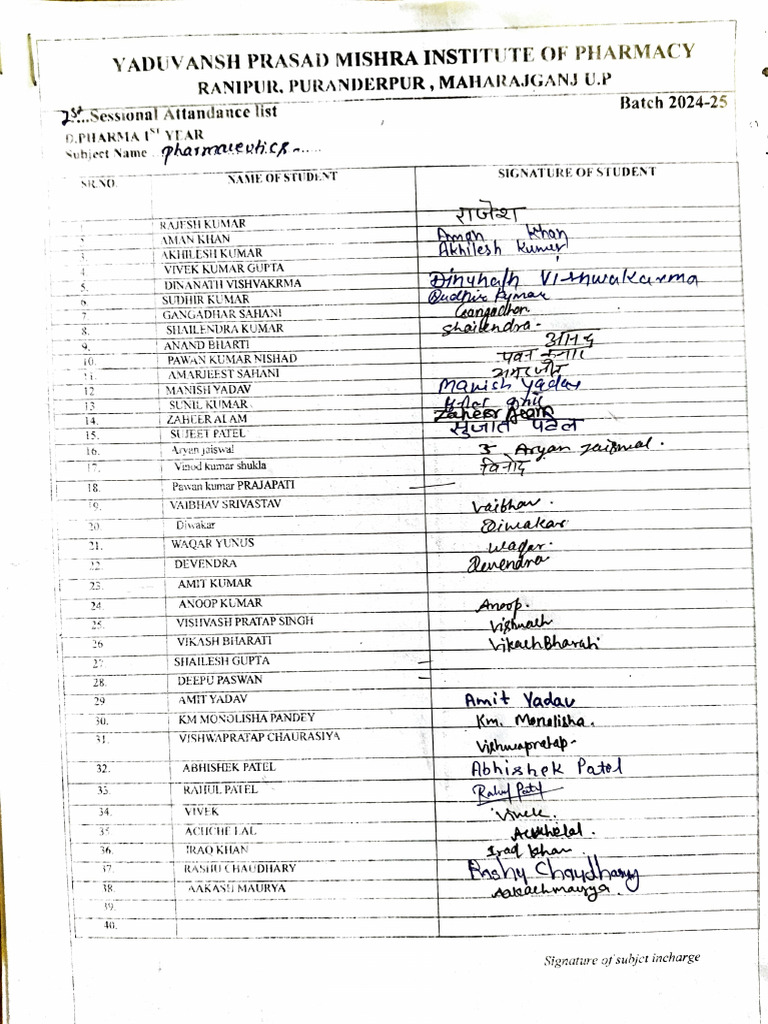 YADUVANSH PRASAD MISHRA INSTITUTE OF PHARMACY
RANIPUR, PURANDERPUR , MAHARAJGANJ U.P
Batch 2024-25
1st...Sessional Attandance list
D.PHARMA 1ST YEAR
Subject Name pharmaceutics......
SR.NO. NAME OF STUDENT SIGNATURE OF STUDENT
1. RAJESH KUMAR राजेश
2. AMAN KHAN Aman Khan
3. AKHILESH KUMAR Akhilesh Kumar
4. VIVEK KUMAR GUPTA
5. DINANATH VISHVAKRMA Dinunath Vishwakarma
6. SUDHIR KUMAR Sudhir Kumar
7. GANGADHAR SAHANI Gangadhar
8. SHAILENDRA KUMAR Shailendra-
9. ANAND BHARTI आनंद
10. PAWAN KUMAR NISHAD पवन कुमार
11. AMARJEEST SAHANI अमरजीत
12 MANISH YADAV Manish Yadav
13 SUNIL KUMAR
14. ZAHEER ALAM Zaheer Alam
15. SUJEET PATEL सुजीत पटेल
16. Aryan jaiswal Aryan Jaiswal.
17. Vinod kumar shukla विनोद
18. Pawan kumar PRAJAPATI —
19. VAIBHAV SRIVASTAV Vaibhav.
20. Diwakar Diwakar
21. WAQAR YUNUS Waqar.
22 DEVENDRA Devendra
23. AMIT KUMAR
24. ANOOP KUMAR Anoop.
25. VISHVASH PRATAP SINGH Vishvash
26 VIKASH BHARATI Vikash Bharati
27. SHAILESH GUPTA —
28. DEEPU PASWAN —
29 AMIT YADAV Amit Yadav
30. KM MONOLISHA PANDEY Km. Monolisha.
31. VISHWAPRATAP CHAURASIYA Vishwapratap-
32. ABHISHEK PATEL Abhishek Patel
33. RAHUL PATEL Rahul Patel
34. VIVEK Vivek.
35 ACUCHE LAL Acuchelal.
36. IRAQ KHAN Iraq khan
37. RASHU CHAUDHARY Rashu Chaudhary
38. AAKASH MAURYA Aakash maurya.
39.
40.
Signature of subjct incharge